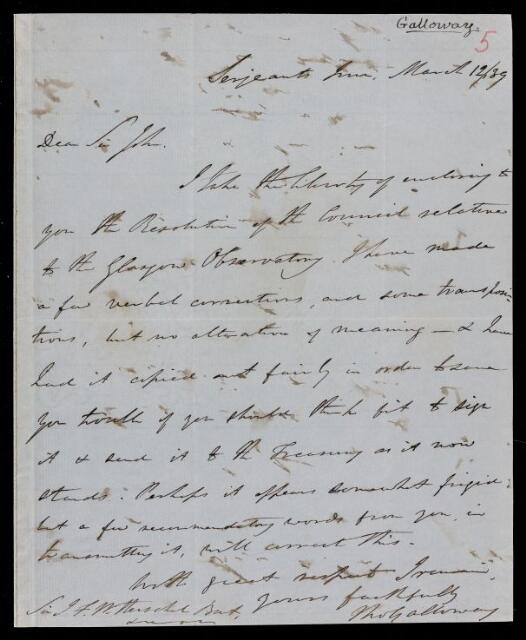 Galloway.
5
Serjeants Inn. March 12/39
Dear Sir John.
I take the liberty of enclosing to
you the Resolution of the Council relative
to the Glasgow Observatory. I have made
a few verbal corrections, and some transposi
tions, but no alteration of meaning – & have
had it copied out fairly in order to save
you trouble if you should think fit to sign
it & send it to the Treasury as it now
stands. Perhaps it appears somewhat frigid;
but a few recommendatory words from you, in
transmitting it, will correct this.
With great respect I remain,
yours faithfully
Sir J. F. W. Herschel Bart.
Tho Galloway